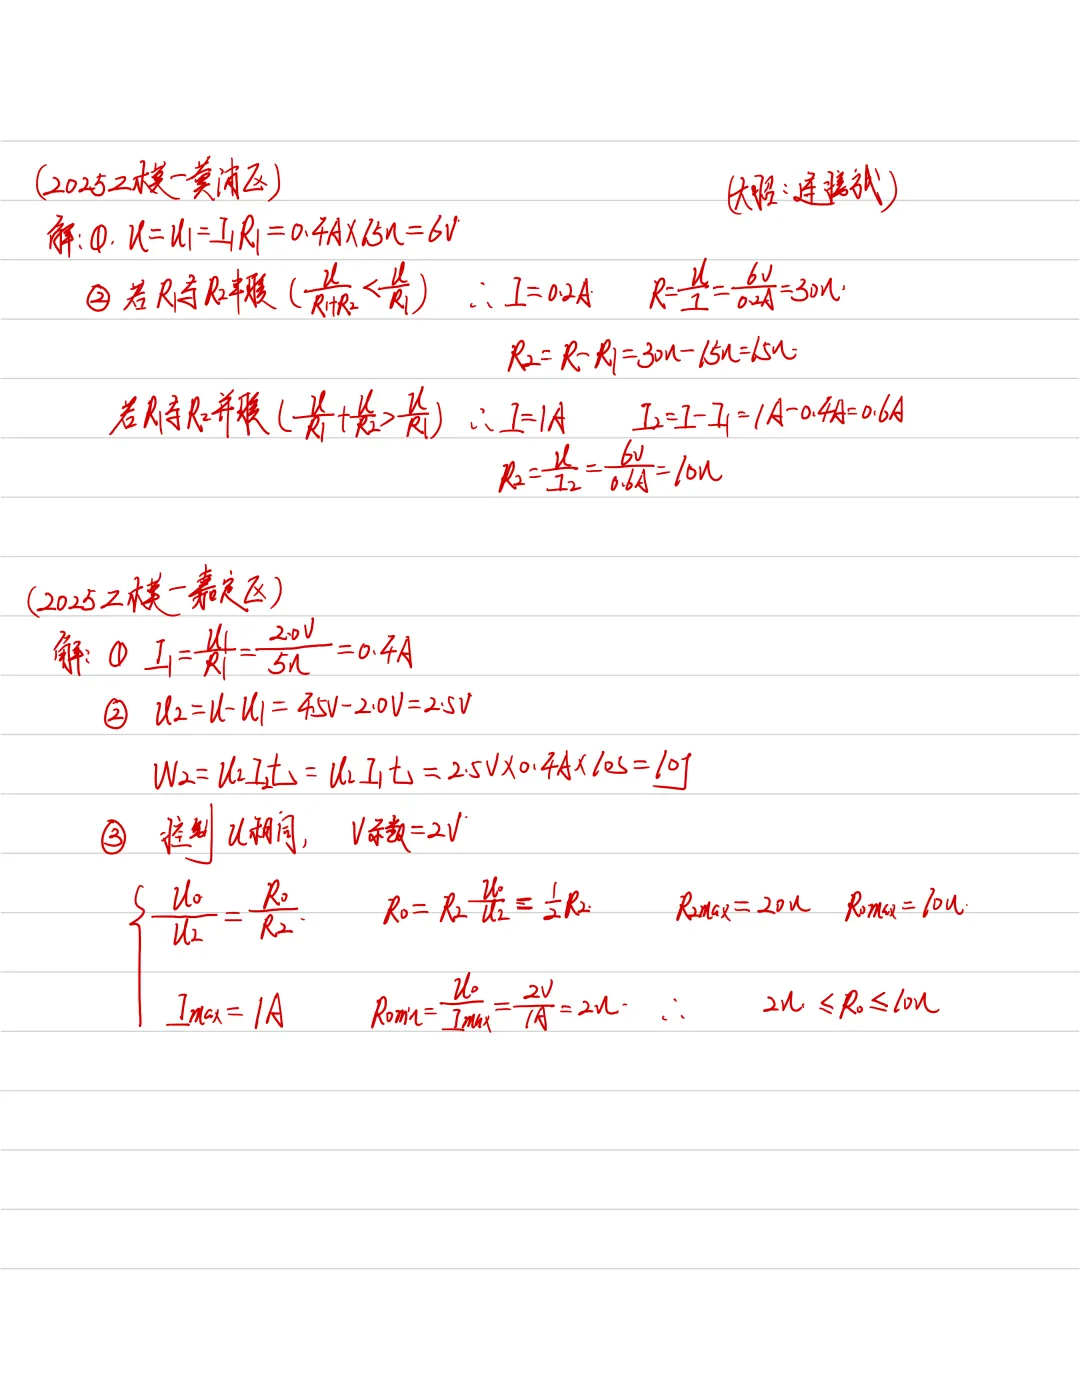 (2025二模一黄浦区)
解：①. U=U₁=I₁R₁=0.4A×15Ω=6V
② 若R₁与R₂串联 (U/(R₁+R₂) < U/R₁) ∴ I=0.2A R=U/I=6V/0.2A=30Ω.
R₂=R-R₁=30Ω-15Ω=15Ω.
若R₁与R₂并联 (U/R₁+U/R₂>U/R₁) ∴ I=1A I₂=I-I₁=1A-0.4A=0.6A
R₂=U/I₂=6V/0.6A=10Ω
(2025二模一嘉定区)
解：① I₁=U₁/R₁=2.0V/5Ω=0.4A
② U₂=U-U₁=4.5V-2.0V=2.5V
W₂=U₂I₂t=U₂I₁t=2.5V×0.4A×10s=10J
③ 控制U相同, V示数=2V
U₀/U₂=R₀/R₂. R₀=R₂U₀/U₂=1/2R₂. R₂max=20Ω R₀max=10Ω.
Imax=1A R₀min=U₀/Imax=2V/1A=2Ω. ∴ 2Ω.≤R₀≤10Ω